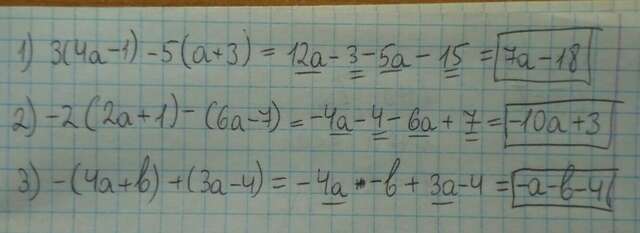 1) 3(4a-1)-5(a+3) = 12a-3-5a-15 = 7a-18
2) -2(2a+1)-(6a-7) = -4a-4-6a+7 = -10a+3
3) -(4a+b)+(3a-4) = -4a-b+3a-4 = -a-b-4